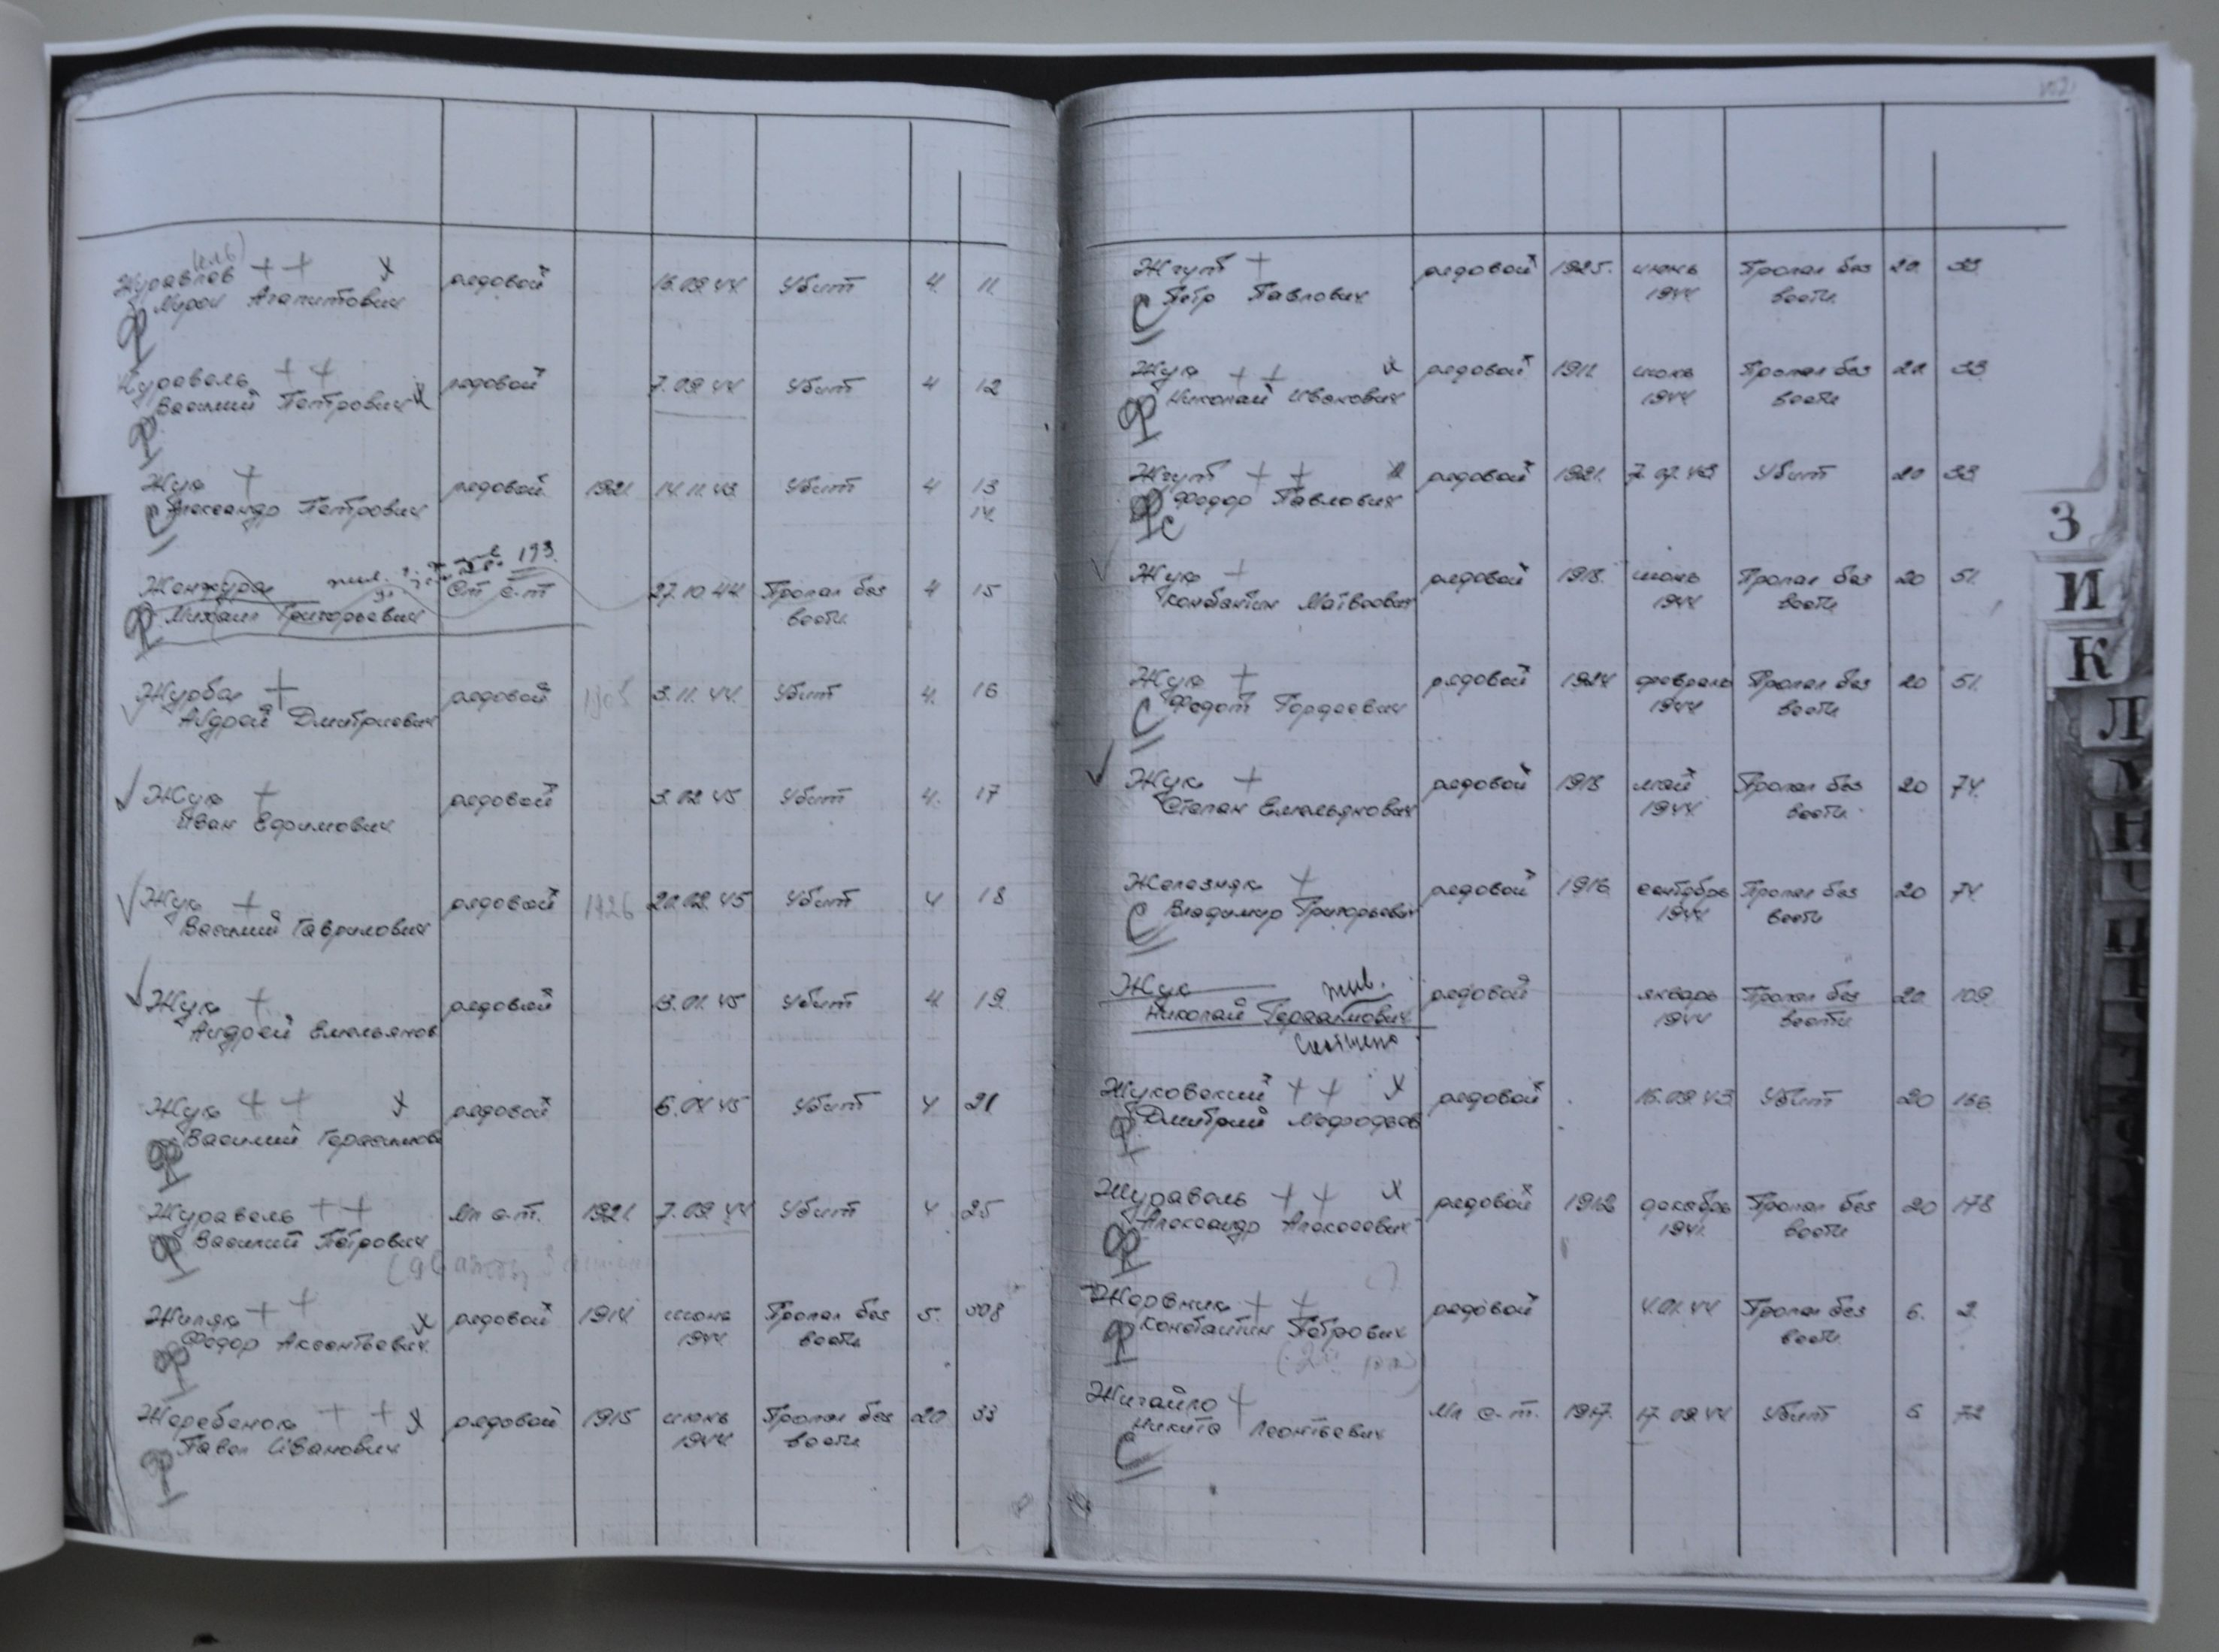 (ель)
Журавлев ++ х рядовой 16.09.44. Убит 4. 11.
Мирон Агапитович
Ф
Журавель ++ рядовой 7.09.44 Убит 4 12
Василий Петрович х
Ф
Жук + рядовой 1921. 14.11.43. Убит 4 13
Александр Петрович 14.
С
193.
Женжура Ст с-т 27.10.44. Пропал без 4 15
Михаил Григорьевич вести.
Ф
Журба + рядовой 3.11.44. Убит 4. 16
Андрей Дмитриевич
Жук + рядовой 3.02.45 Убит 4. 17
Иван Ефимович
Жук + рядовой 1926 20.02.45 Убит 4 18
Василий Гаврилович
Жук + рядовой 13.01.45 Убит 4 19.
Андрей Емельянов
Жук ++ х рядовой 6.04.45 Убит 4 21
Василий Герасимов
Ф
Журавель ++ Мл с-т. 1921. 7.09.44 Убит 4 25
Василий Петрович
Ф
Жиляк ++ рядовой 1914 июнь Пропал без 5.
Федор Аксентьевич х 1944. вести
Ф
Жеребенок ++ х рядовой 1915 июнь Пропал без 20 33
Павел Иванович 1944 вести
Ф
Жгут + рядовой 1925. июнь Пропал без 20. 33
Петр Павлович 1944 вести.
С
Жук ++ х рядовой 1911. июнь Пропал без 20 33
Николай Иванович 1944 вести
Ф
Жгут ++ рядовой 1921. 7.07.43 Убит 20 33
Федор Павлович
Ф С
Жук + рядовой 1918. июнь Пропал без 20 51.
Константин Матвеевич 1944 вести
Жук + рядовой 1924 февраль Пропал без 20 51.
Федот Гордеевич 1944 вести
С
Жук + рядовой 1918 май Пропал без 20 74.
Степан Емельянович 1944 вести.
Железняк + рядовой 1916. сентябрь Пропал без 20 74
Владимир Григорьевич 1944 вести
С
Жук жив. рядовой январь Пропал без 20. 109.
Николай Герасимович 1944 вести.
Жуковский ++ х рядовой 16.09.43 Убит 20 166
Дмитрий Мефодьев
Ф
Журавель ++ х рядовой 1912 декабрь Пропал без 20 178
Александр Алексеевич 1941. вести
Ф
Жеревник ++ рядовой 4.01.44 Пропал без 6. 2.
Константин Петрович вести.
Ф
Жигайло + Мл с-т. 1917. 17.09.44 Убит 6 72
Никита Леонтьевич
С
З
И
К
Л
М
Н